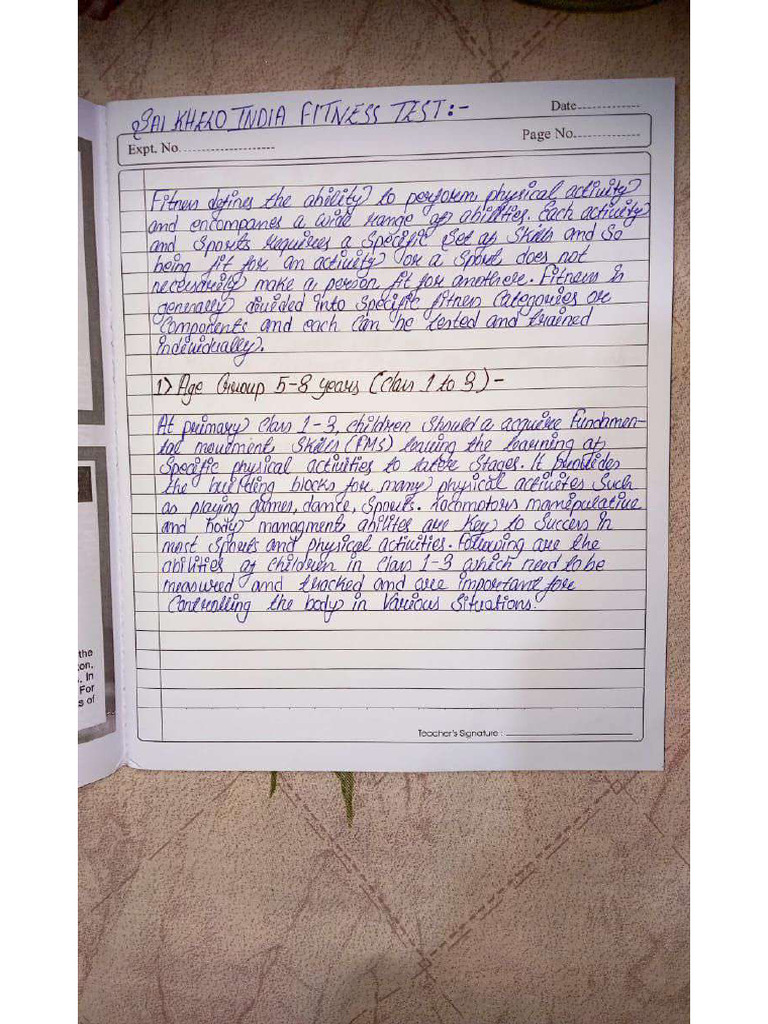 SAI KHELO INDIA FITNESS TEST:-
Date
Page No.
Expt. No.
Fitness defines the ability to perform physical activity
and encompanes a wide range of abilities. Each activity
and Sports requires a Specific Set of Skills and So
being fit for an activity or a Sport does not
necessarily make a person fit for anothere. Fitness is
generally divided into Specific fitness Categories or
Components and each Can be tested and trained
individually.
1) Age Group 5-8 years (Class 1 to 3) -
At primary Class 1-3, children Should a acquire Fundamen-
tal movement Skills (FMS) leaving the learning of
Specific physical activities to later Stages. It provides
the building blocks for many physical activites Such
as playing games, dance, Sports. Locomotors manipulative
and body managments abilites are Key to Success in
most Sports and physical activities. Following are the
abilities of children in Class 1-3 which need to be
measured and tracked and are important for
Controlling the body in Various Situations.
Teacher's Signature :
the
on.
. In
For
s of